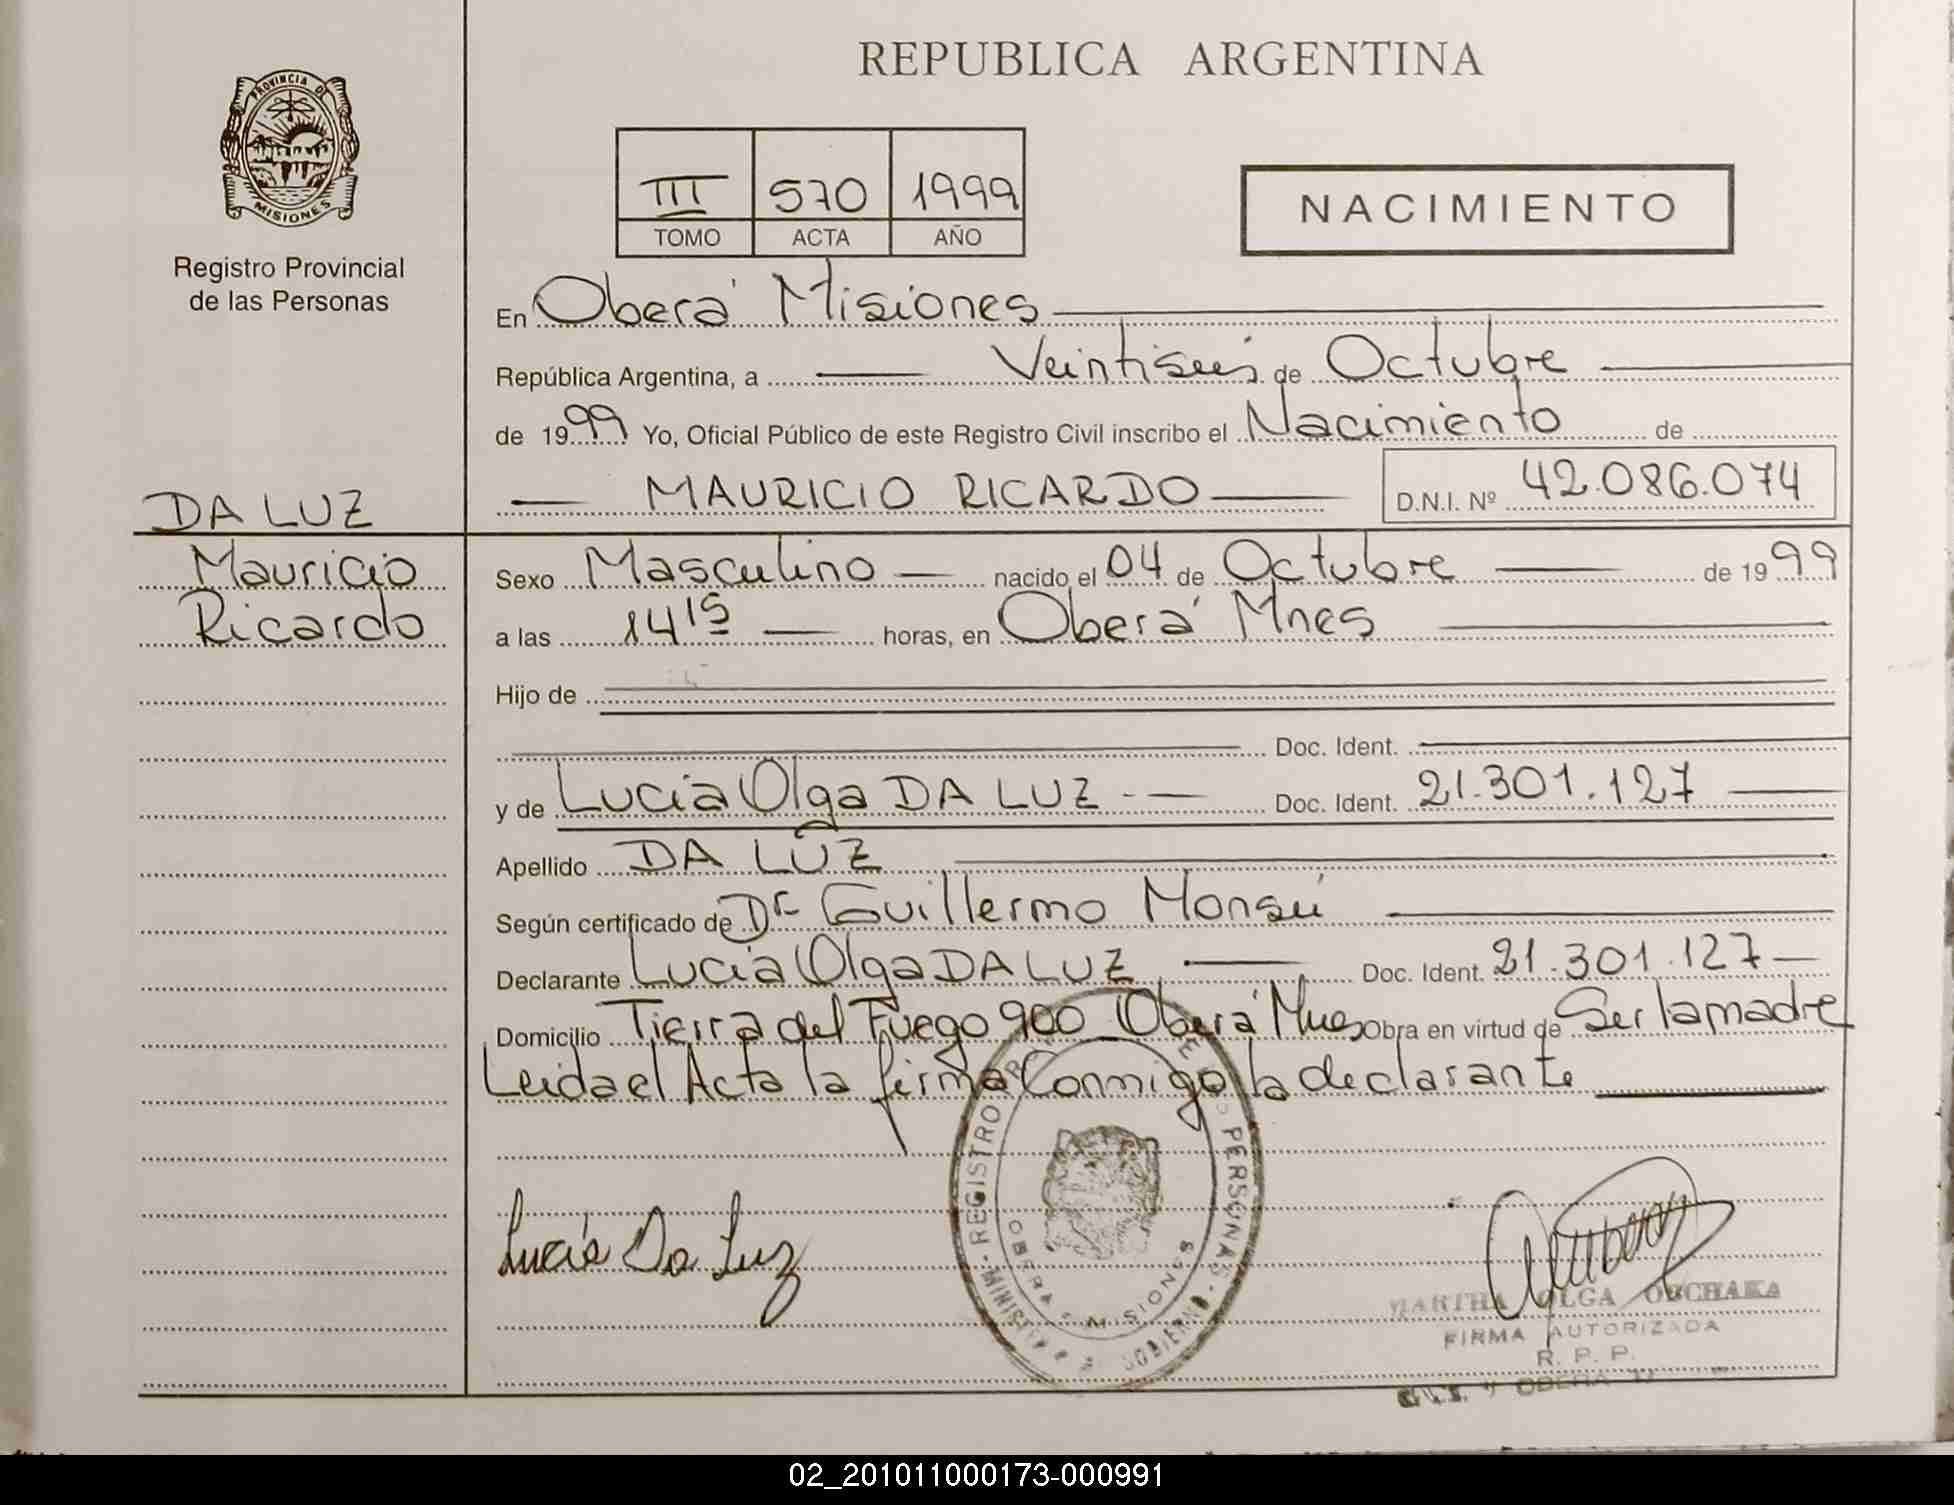 REPUBLICA ARGENTINA
PROVINCIA DE
MISIONES
Registro Provincial
de las Personas
III 570 1999
TOMO ACTA AÑO
NACIMIENTO
En Oberá Misiones
República Argentina, a Veintiséis de Octubre
de 1999 Yo, Oficial Público de este Registro Civil inscribo el Nacimiento de
MAURICIO RICARDO D.N.I. Nº 42.086.074
DA LUZ
Mauricio
Ricardo
Sexo Masculino nacido el 04 de Octubre de 1999
a las 14 15 horas, en Oberá Mnes
Hijo de
Doc. Ident.
y de Lucia Olga DA LUZ Doc. Ident. 21.301.127
Apellido DA LUZ
Según certificado de Dr Guillermo Monsú
Declarante Lucia Olga DA LUZ Doc. Ident. 21.301.127
Domicilio Tierra del Fuego 900 Oberá Mnes Obra en virtud de Ser la madre
Leida el Acta la firma Conmigo la declarante
REGISTRO PERSONAS
OBERA MISIONES
GOBIERNO
Lucia Da Luz
MARTHA OLGA
FIRMA AUTORIZADA
R. P. P.
OBERA
02_201011000173-000991